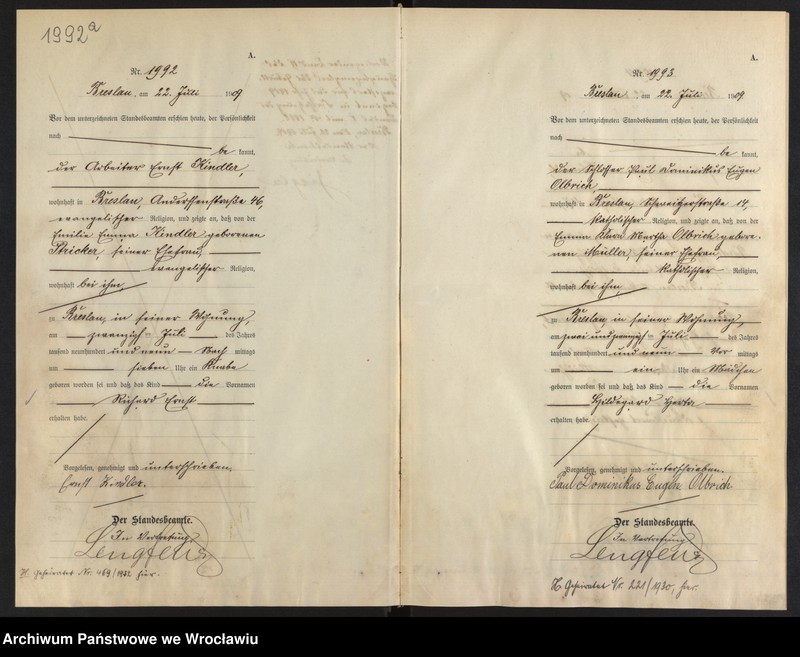 1992a
A.
Nr. 1992
Breslau, am 22. Juli 1909
Vor dem unterzeichneten Standesbeamten erschien heute, der Persönlichkeit
nach
be kannt,
der Arbeiter Ernst Kindler,
wohnhaft in Breslau, Anderssenstraße 46,
evangelischer Religion, und zeigte an, daß von der
Emilie Emma Kindler geborenen
Stricker, seiner Ehefrau,
evangelischer Religion,
wohnhaft bei ihm,
zu Breslau, in seiner Wohnung,
am zwanzigsten Juli des Jahres
tausend neunhundert und neun Nach mittags
um sieben Uhr ein Knabe
geboren worden sei und daß das Kind die Vornamen
Richard Ernst
erhalten habe.
Vorgelesen, genehmigt und unterschrieben.
Ernst Kindler.
Der Standesbeamte.
In Vertretung
Geheiratet Nr. 469/1932 hier.
A.
Nr. 1993
Breslau, am 22. Juli 1909.
Vor dem unterzeichneten Standesbeamten erschien heute, der Persönlichkeit
nach
be kannt,
der Schlosser Paul Dominikus Eugen
Olbrich,
wohnhaft in Breslau, Schweitzerstraße 14,
katholischer Religion, und zeigte an, daß von der
Emma Martha Olbrich gebore-
nen Müller, seiner Ehefrau,
katholischer Religion,
wohnhaft bei ihm,
zu Breslau in seiner Wohnung,
am zwei und zwanzigsten Juli des Jahres
tausend neunhundert und neun Vor mittags
um ein Uhr ein Mädchen
geboren worden sei und daß das Kind die Vornamen
Hildegard Herta
erhalten habe.
Vorgelesen, genehmigt und unterschrieben.
Paul Dominikus Eugen Olbrich
Der Standesbeamte.
In Vertretung
Geheiratet Nr. 221/1930, hier.
Archiwum Państwowe we Wrocławiu